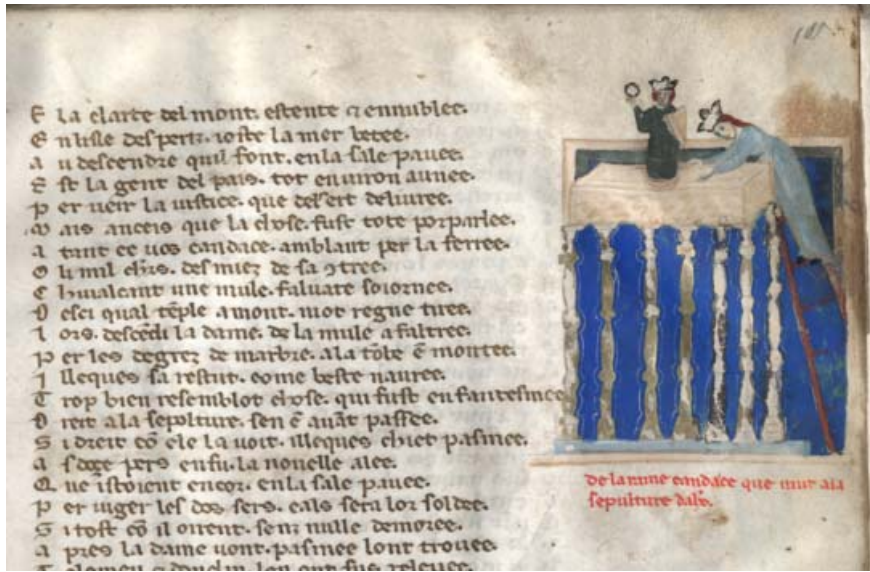 E la clarte del mont. estente ⁊ ennublee.
E n lisle des pertz. ioste la mer betee.
A u descendre quil font. en la sale pauee.
E st la gent del pais. tot enuiron aunee.
P er ueir la iustice. que del sert deliuree.
M ais anceis que la chose. fust tote porparlee.
A tant ee uos candace. amblant per la ferree.
O li mil chrs. des miez de sa ꝯtree.
C heualcant une mule. saluate soiornee.
D esci qual tēple amont. not regne tiree.
L ors. descēdi la dame. de la mule afaltree.
P er les degrez de marbre. a la tōbe ē montee.
I lleques sa restut. come beste nauree.
T rop bien resemblot chose. qui fust en fantesmee
D reit a la sepolture. sen ē auāt passee.
S i dreit cō ele la uoit. illeques chiet pasmee.
A
Q ue istoient encor. en la sale pauee.
P er iuger les dos sers. cals sera lor soldee.
S i tost cō il oirent. senz nulle demoree.
A pres la dame uont. pasmee lont trouee.
T olomeu ⁊ len ont sus releuee.
de la reine candace que uint ala
sepulture